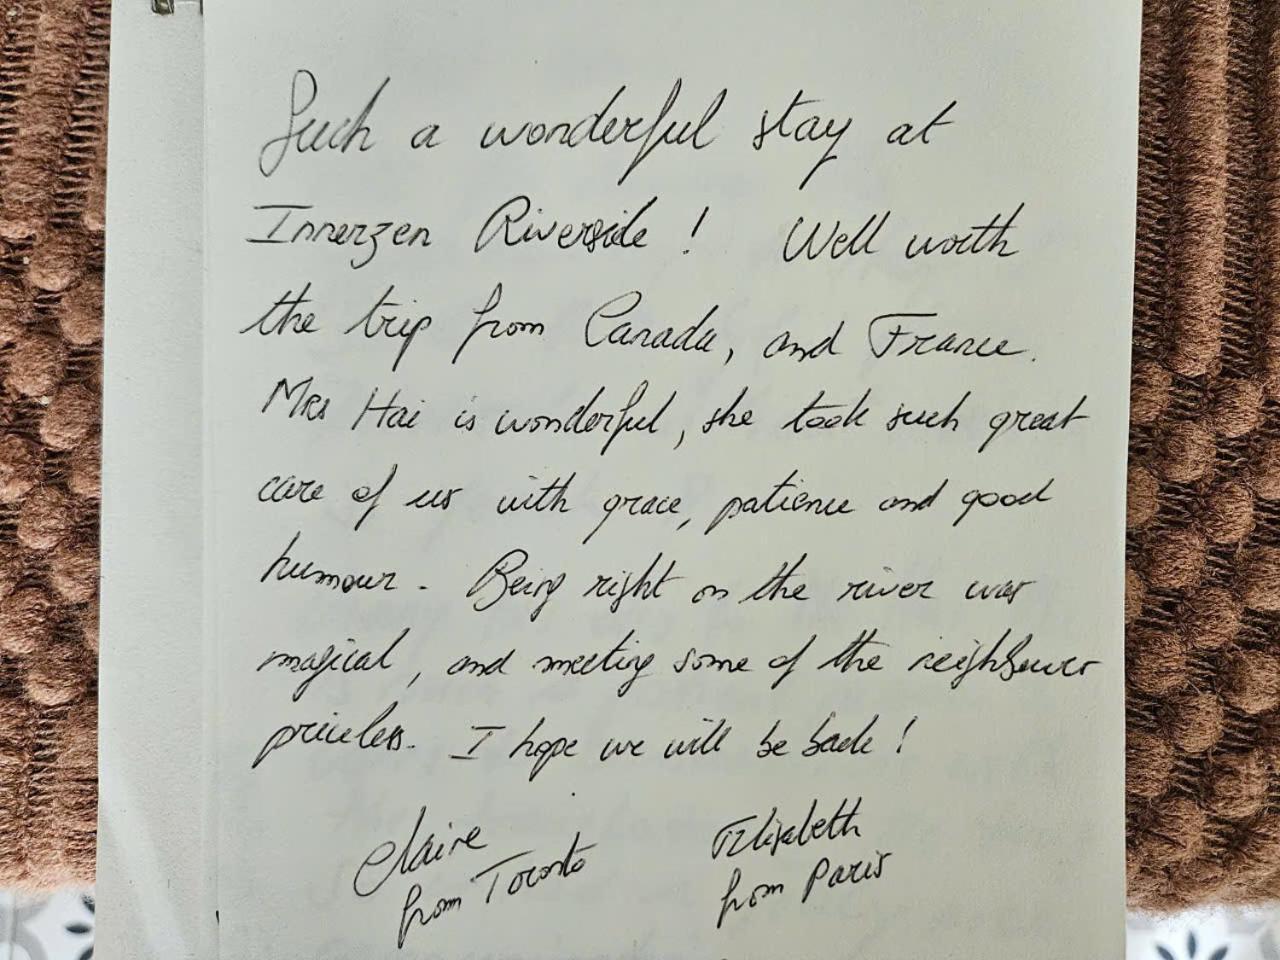 Such a wonderful stay at
Innerzen Riverside ! Well worth
the trip from Canada, and France.
Mrs Hai is wonderful, she took such great
care of us with grace, patience and good
humour. Being right on the river was
magical, and meeting some of the neighbours
priceless. I hope we will be back !
Claire Elizabeth
from Toronto from Paris